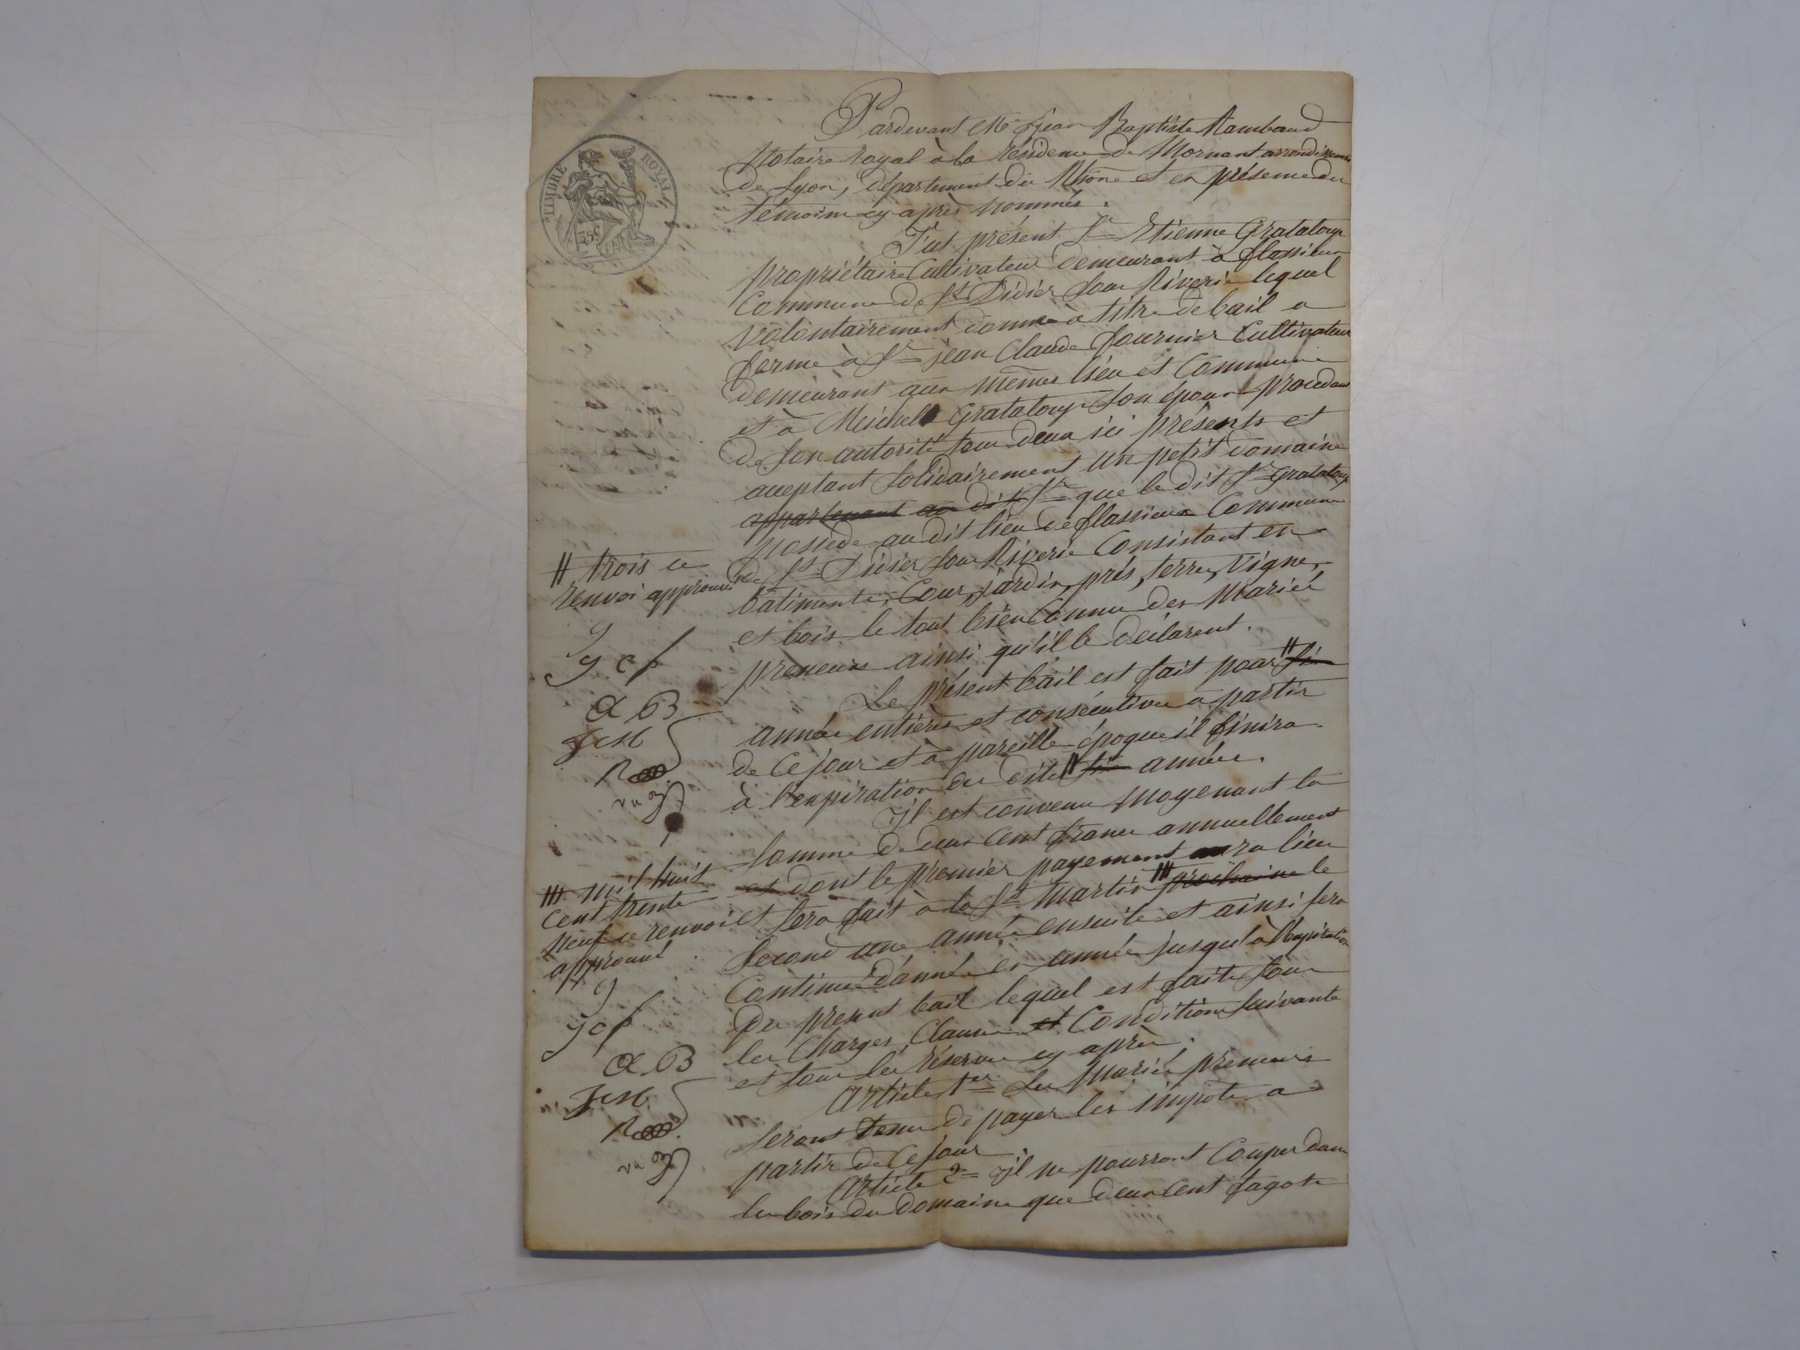 Pardevant Me Jean Baptiste Rambaud
Notaire royal à la résidence de Mornant arrondissement
de Lyon, département du Rhône et en présence des
témoins cy après nommés.
Fut présent Sr Etienne Grataloup
propriétaire Cultivateur demeurant à flassieux
Commune de St Didier sous Riverie lequel
Volontairement donne à titre de bail a
ferme à Sr jean Claude fournier Cultivateur
demeurant aux mêmes lieu et Commune
et a Grataloup son épouse procedant
de son autorité tous deux ici présents et
acceptant solidairement un petit domaine
appartenant au dit Sr que le dit Sr Grataloup
possède au dit lieu de flassieux Commune
de St Didier sous Riverie Consistant en
bâtiments, Cour, jardin, prés, terres, Vigne,
et bois le tout bien Connu des Mariés
preneurs ainsi qu'il le déclarent.
Le présent bail est fait pour # six
années entières et consécutives a partir
de Ce jour et à pareille époque il finira
à l'expiration des dites # six années.
Il est convenu Moyenant la
somme de deux Cent francs annuellement
et dont le premier payement aura lieu
et sera fait a la St Martin prochaine le
second une année ensuite et ainsi sera
Continué d'année en année jusqu'à l'expiration
du present bail lequel est fait sous
les Charges, Clauses et Conditions suivante
et sous les réserves cy après.
Article 1er Les Mariés preneurs
seront tenus de payer les impots a
partir de Ce jour
Article 2e Il ne pourront Couper dans
les bois du domaine que deux Cent fagots
TIMBRE ROYAL
35c
# trois ce
renvoi approuvé
g c f
JCM
mil huit
cent trente
neuf ce renvoi
approuvé
g c f
JCM